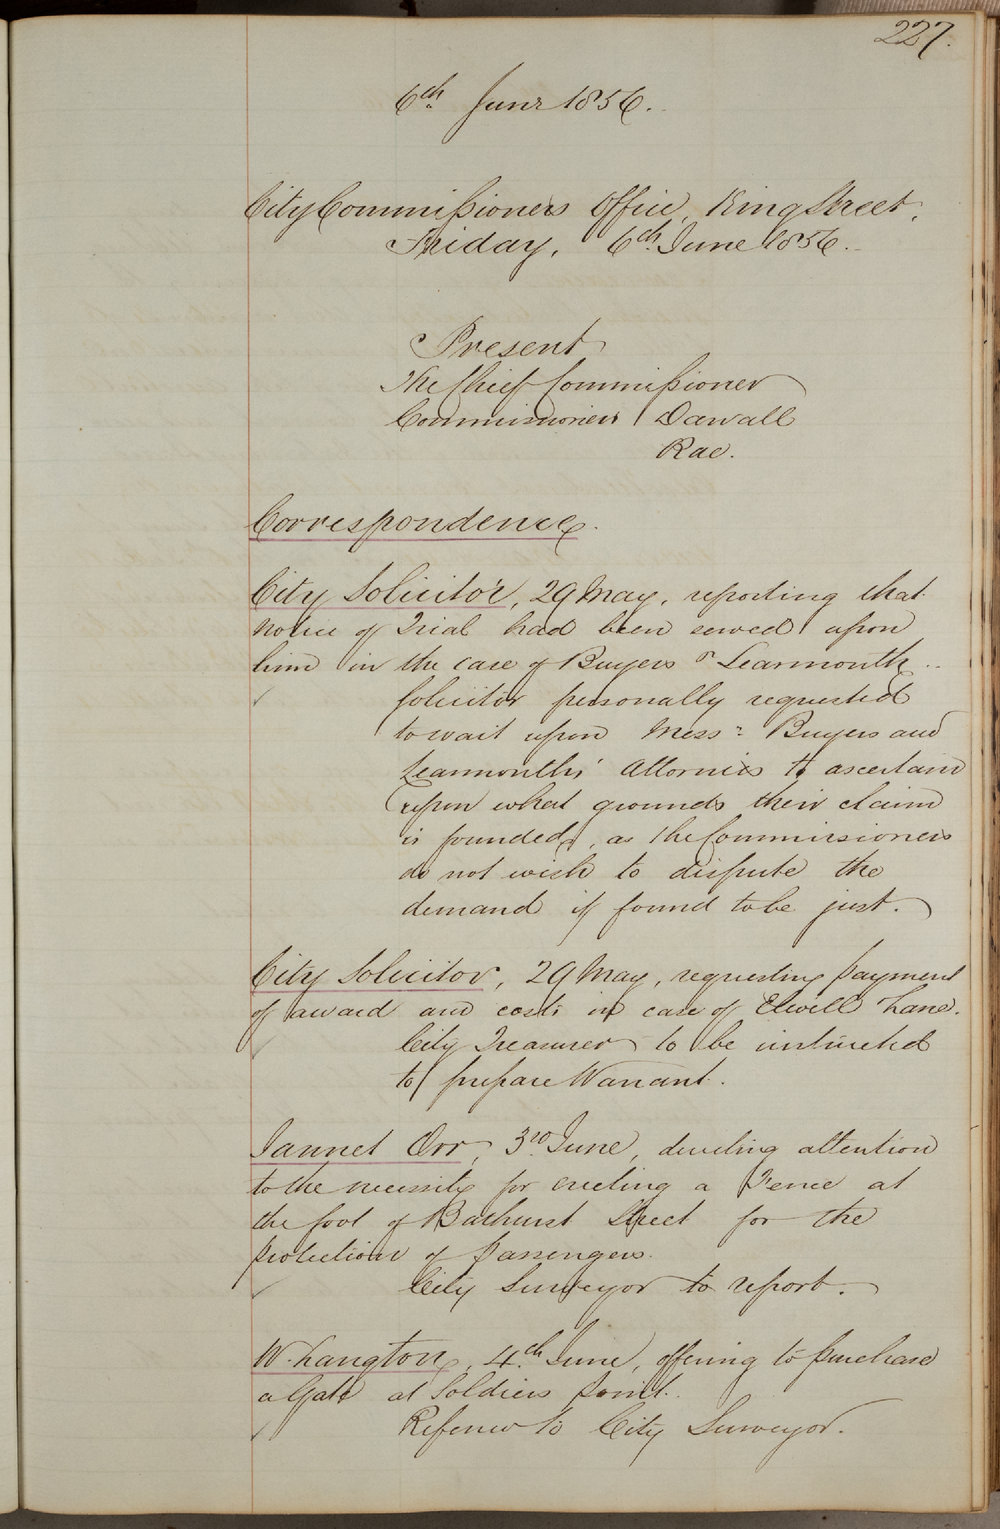 227.
6th June 1856.
City Commissioners Office, King Street,
Friday, 6th June 1856.
Present
The Chief Commissioner
Commissioners Darvall
Rae.
Correspondence.
City Solicitor, 29 May, reporting that
notice of Trial had been served upon
him in the case of Buyers & Learmonth
Solicitor personally requested
to wait upon Messrs Buyers and
Learmonths' Attornies to ascertain
upon what grounds their claim
is founded, as the Commissioners
do not wish to dispute the
demand if found to be just.
City Solicitor, 29 May, requesting payment
of award and costs in case of Elwell Lane.
City Treasurer to be instructed
to prepare Warrant.
Jannet Orr, 3rd June, directing attention
to the necessity for erecting a Fence at
the foot of Bathurst Street for the
protection of passengers.
City Surveyor to report.
W. Langton, 4th June, offering to purchase
a Gate at Soldiers Point.
Referred to City Surveyor.